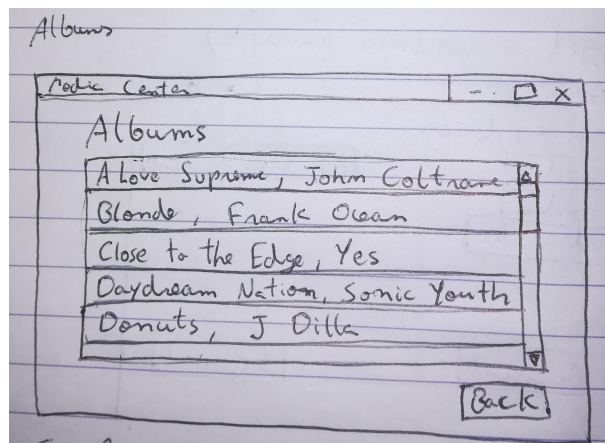 Albums
Media Center
Albums
A Love Supreme, John Coltrane
Blonde, Frank Ocean
Close to the Edge, Yes
Daydream Nation, Sonic Youth
Donuts, J Dilla
Back